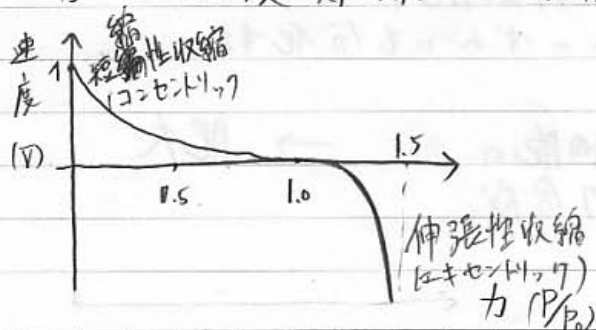 速度
(V)
1
短縮性収縮
(コンセントリック
0.5
1.0
1.5
伸張性収縮
(エキセントリック)
力(P/P₀)